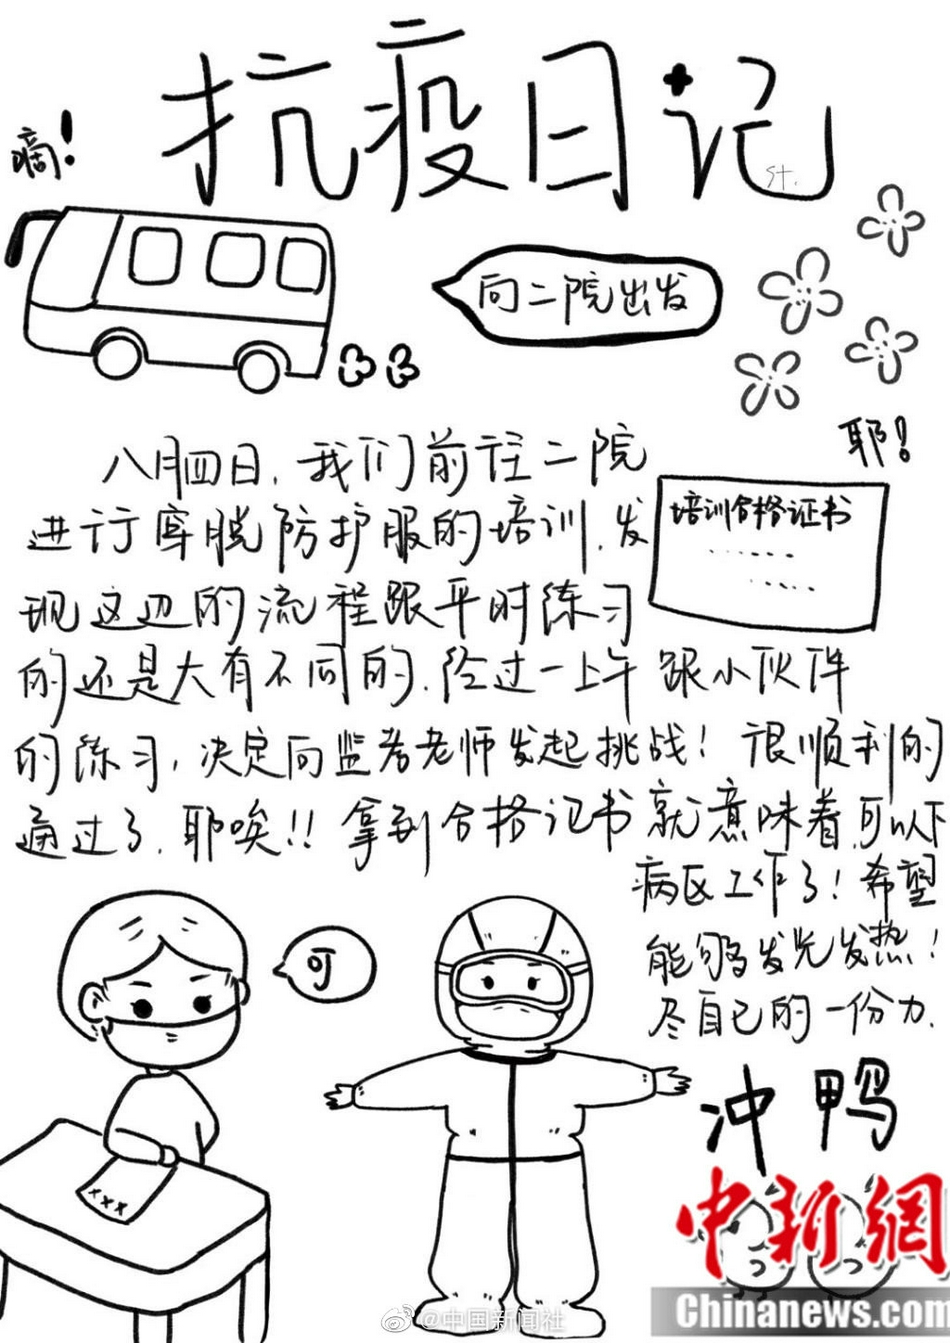 抗疫日记
St.
嘀!
向二院出发
耶!
培训合格证书
八月四日,我们前往二院
进行穿脱防护服的培训,发
现这边的流程跟平时练习
的还是大有不同的.经过一上午跟小伙伴
的练习,决定向监考老师发起挑战!很顺利的
通过了.耶唉!!拿到合格记书就意味着可以下
病区工作了!希望
能够发光发热!
尽自己的一份力.
可
xxx
冲鸭
中新網
Chinanews.com
@中国新闻社